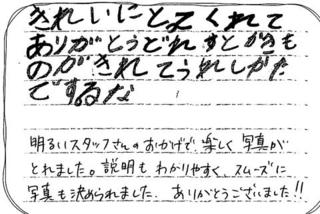 きれいにとてくれて
ありがとうどれすとがきも
のがきれてうれしがた
ですな
明るいスタッフさんのおかげで楽しく写真が
とれました。説明もわかりやすく、スムーズに
写真も決められました。ありがとうございました!!